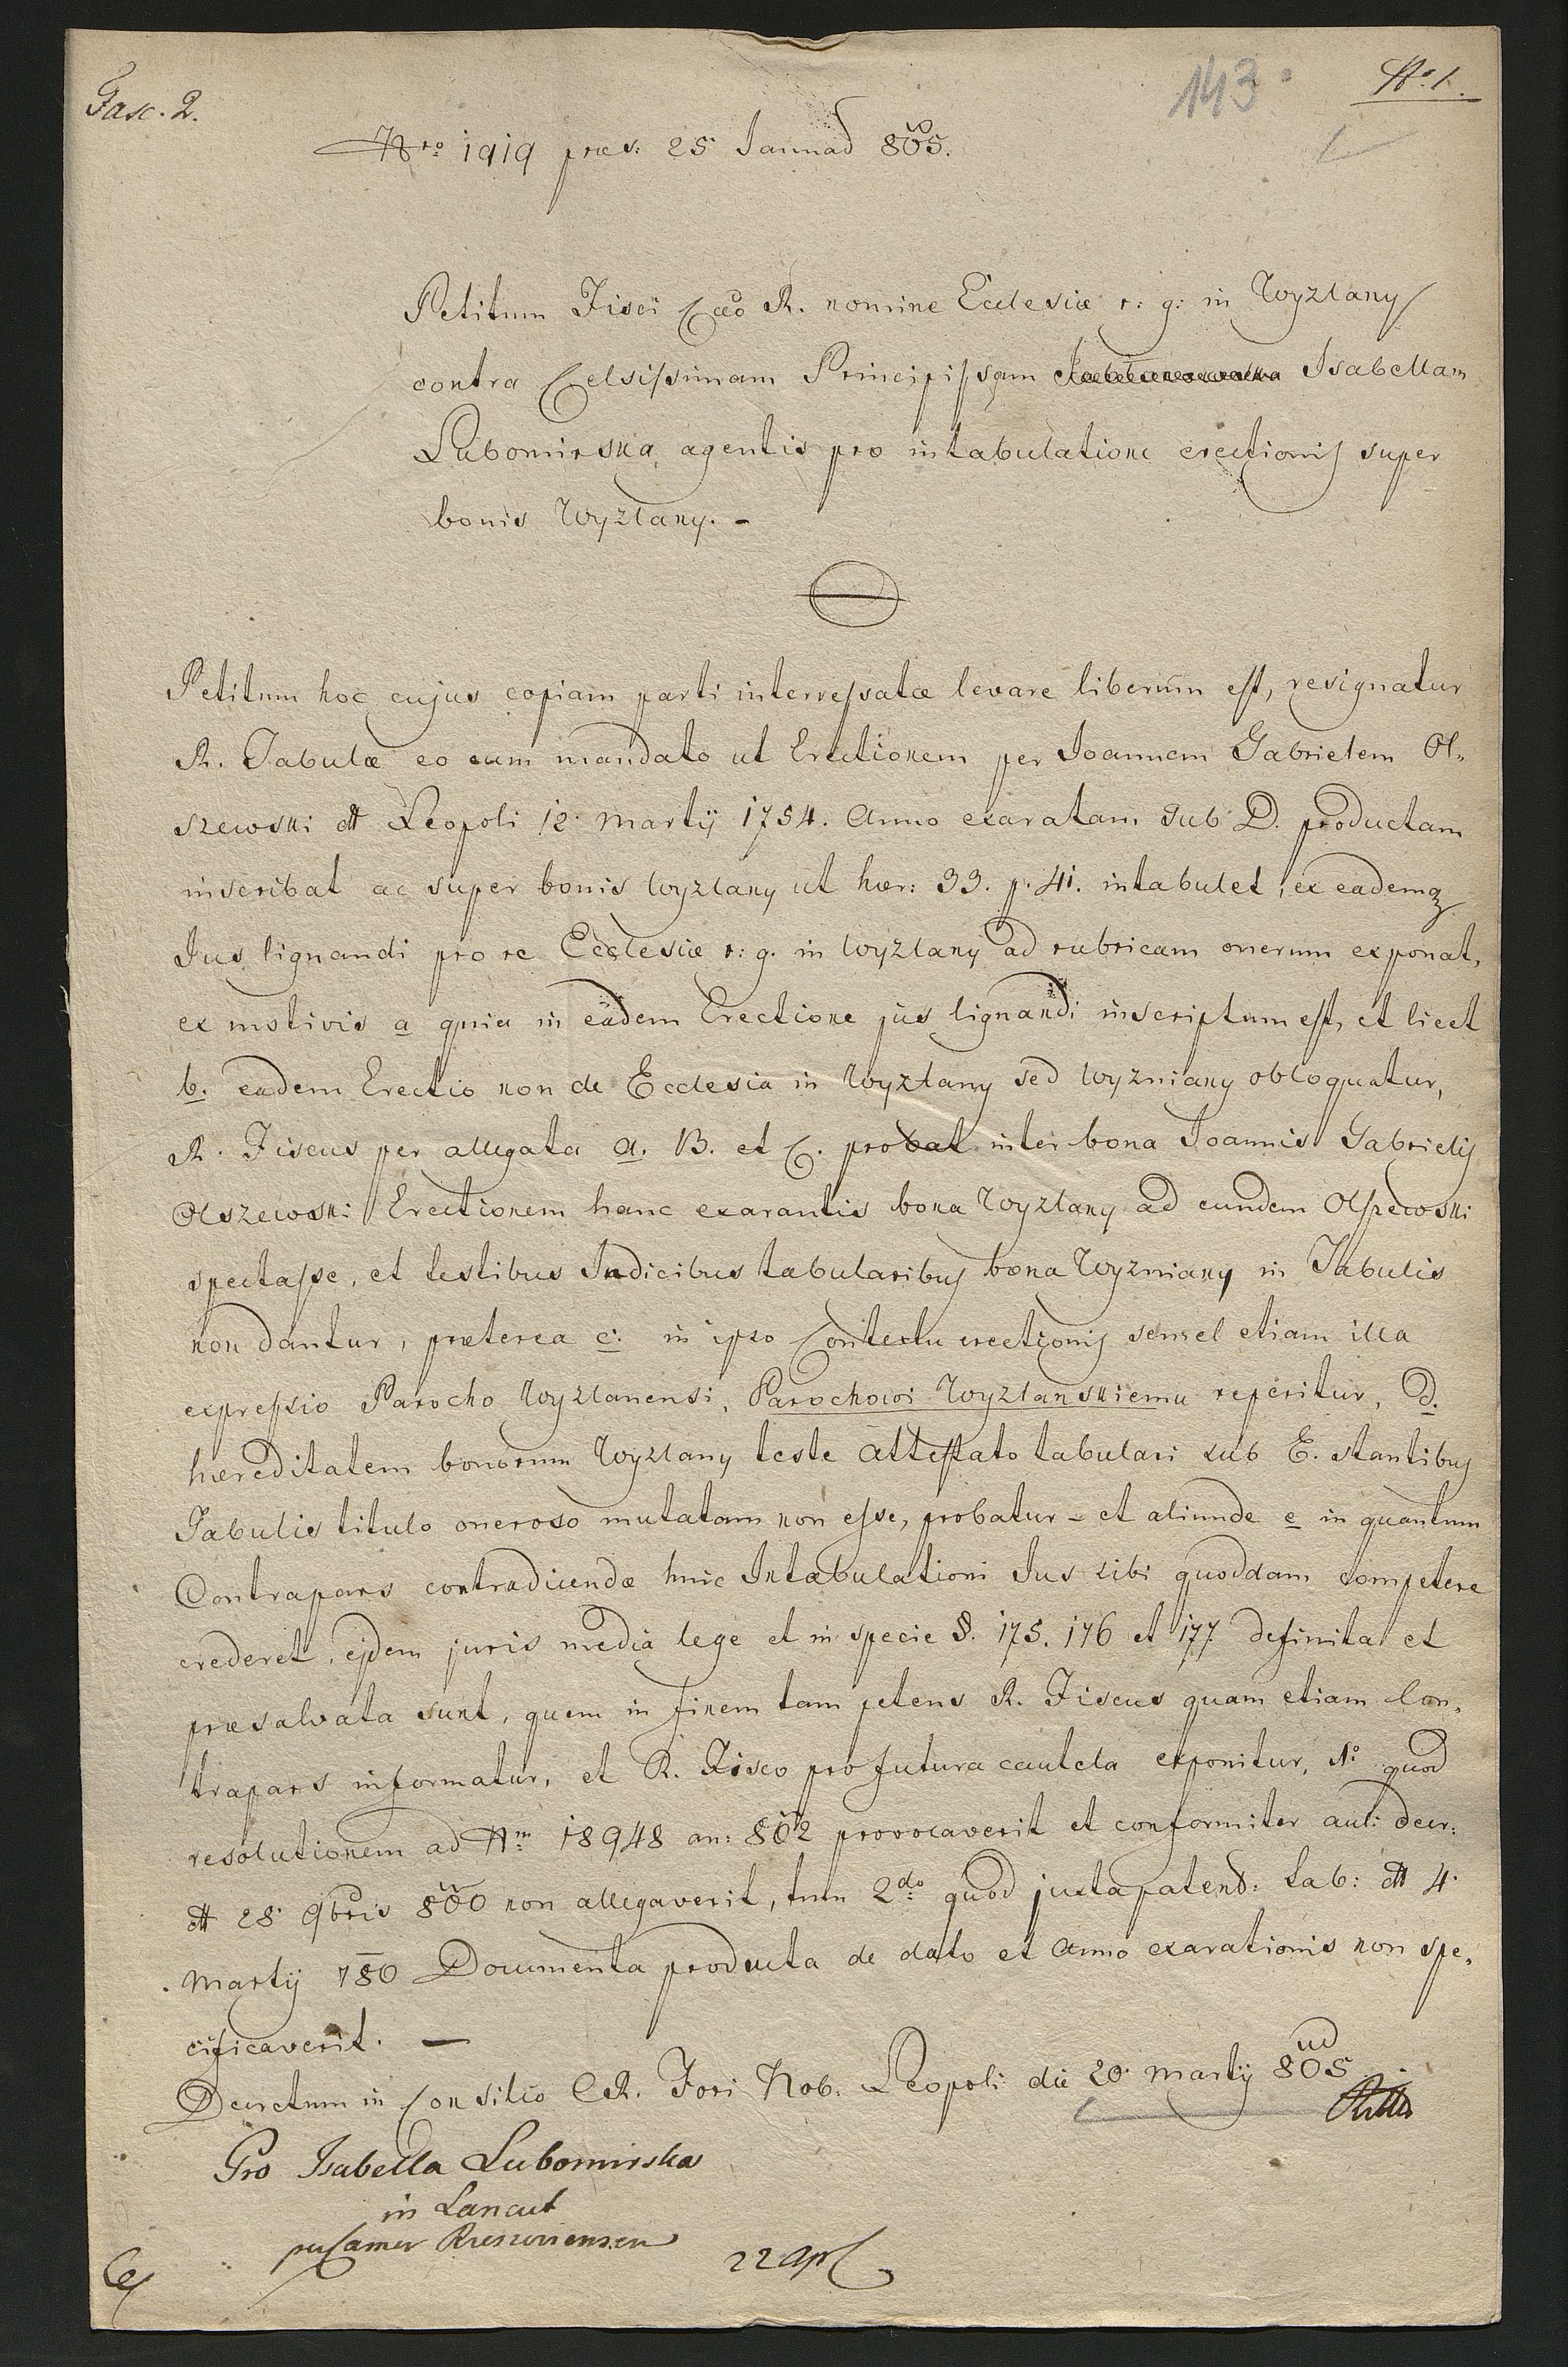 Fasc. 2.
143
No. 1.
Nro 1919 præs: 25 Januad 805.
Petitum Fisci Cæo R. nomine Ecclesiæ r: g: in Wyzlany
contra Celsissimam Principissam Isabellam
Lubomirska agentis pro intabulatione erectionis super
bonis Wyzlany. -
Petitum hoc cujus copiam parti interressatæ levare liberum est, resignatur
R. Tabulæ eo cum mandato ut Erectionem per Joannem Gabrielem Ol-
szewski dt Leopoli 12 Martij 1754. Anno exaratam sub D. productam
inscribat ac super bonis Wyzlany ut hær: 33. p. 41. intabulet, ex eademq
Jus lignandi pro re Ecclesiæ r: g. in Wyzlany ad rubricam onerum exponat,
ex motivis a quia in eadem Erectione jus lignandi inscriptum est, et licet
b. eadem Erectio non de Ecclesia in Wyzlany sed Wyzniany obloquatur,
R. Fiscus per allegata A. B. et C. probat inter bona Joannis Gabrielis
Olszewski Erectionem hanc exarantis bona Wyzlany ad eundem Olszewski
spectasse, et testibus Indicibus tabularibus bona Wyzniany in Tabulis
non dantur, præterea c: in ipso Contextu erectionis semel etiam illa
expressio Parocho Wyzlanensi, Parochowi Wyzlanskiemu reperitur, d.
hæreditatem bonorum Wyzlany teste Attestato tabulari sub E. stantibus
Tabulis titulo oneroso mutatam non esse, probatur - et aliunde e in quantum
Contrapars contradicendæ huic Intabulationi Jus sibi quoddam competere
crederet, ejdem juris media lege et in specie §. 175. 176 et 177 definita et
præsalvata sunt, quem in finem tam petens R. Fiscus quam etiam Con-
trapars informatur, et R. Fisco pro futura cautela exponitur, 1o quod
resolutionem ad Nm 18948 an: 802 provocaverit et conformiter aul: decr:
dt 28 9bris 800 non allegaverit, tum 2do quod juxta patend: tab: dt 4
Martij 780 Documenta producta de dato et Anno exarationis non spe-
cificaverit. —
Decretum in Consilio C.R. Fori Nob. Leopoli die 20 Martij 805
Pro Isabella Lubomirska
in Lancut
22 Apr